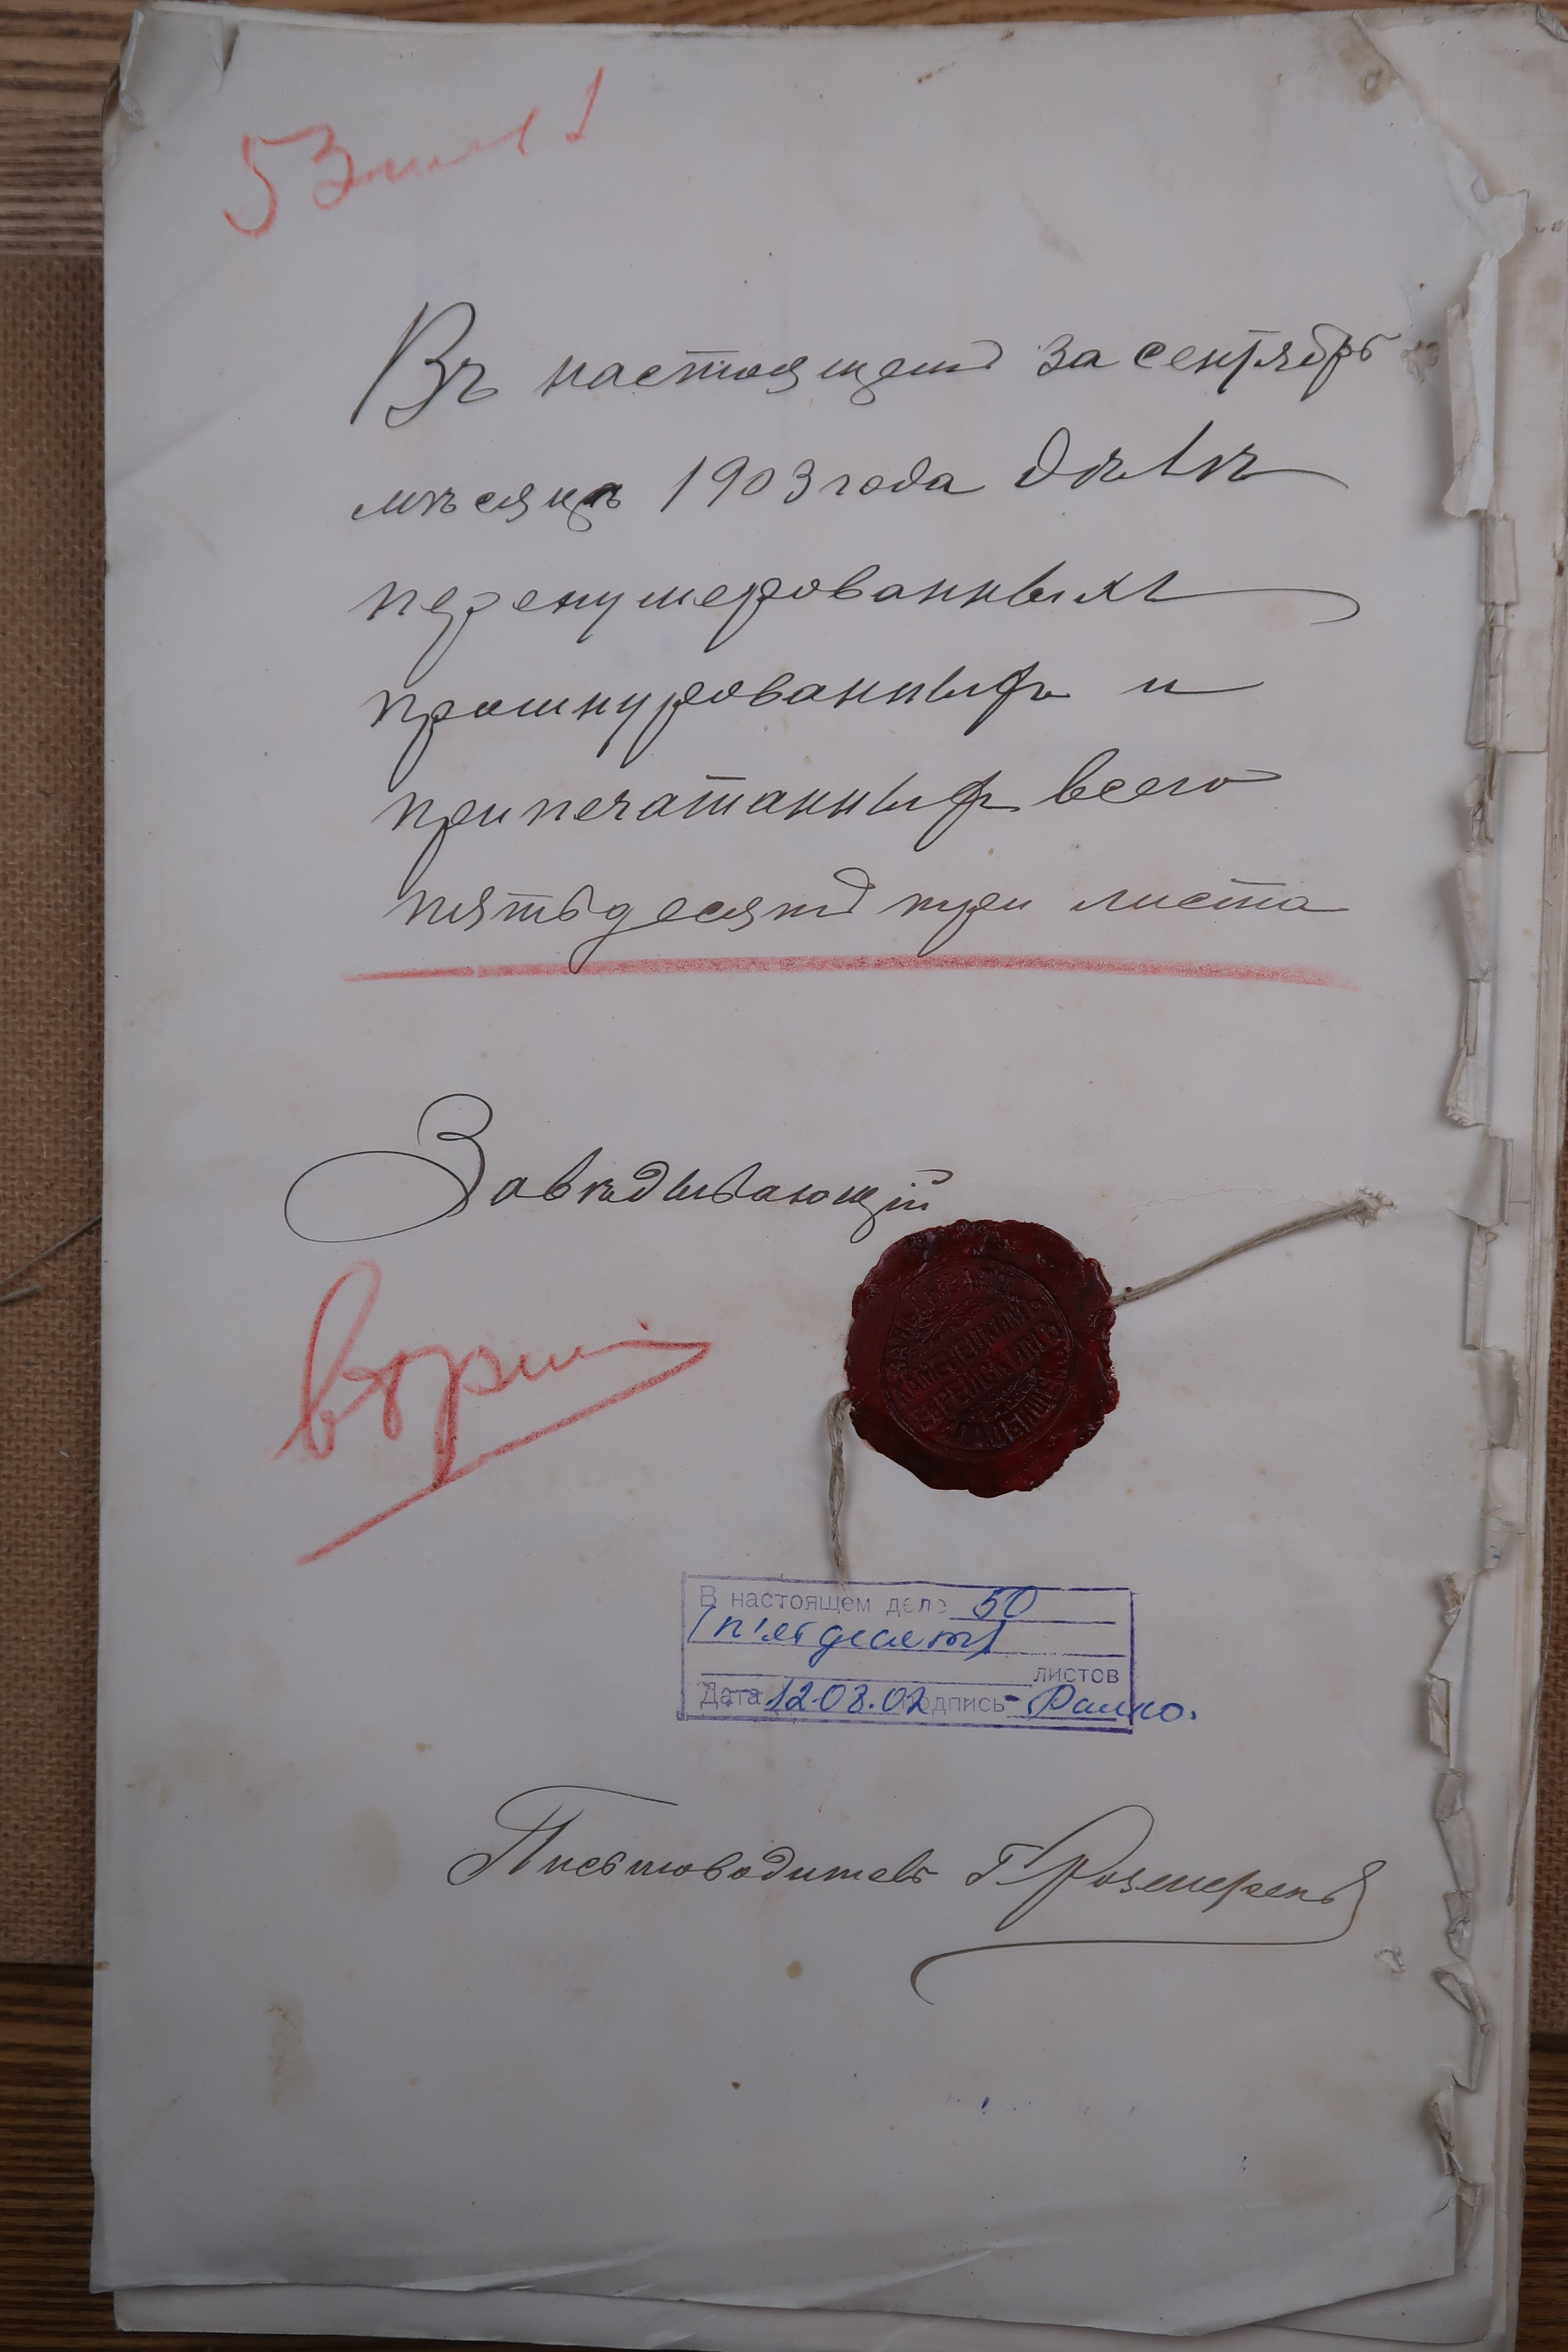 53 лист
Въ настоящемъ за сентябрь
мѣсяцъ 1903 года дѣлѣ
перенумерованныхъ
прошнурованныхъ и
припечатанныхъ всего
пятьдесятъ три листа
Завѣдывающій
В настоящем деле 50
(п'ятдесят)
листов
Дата 12.03.02 подпись
Письмоводитель Г.